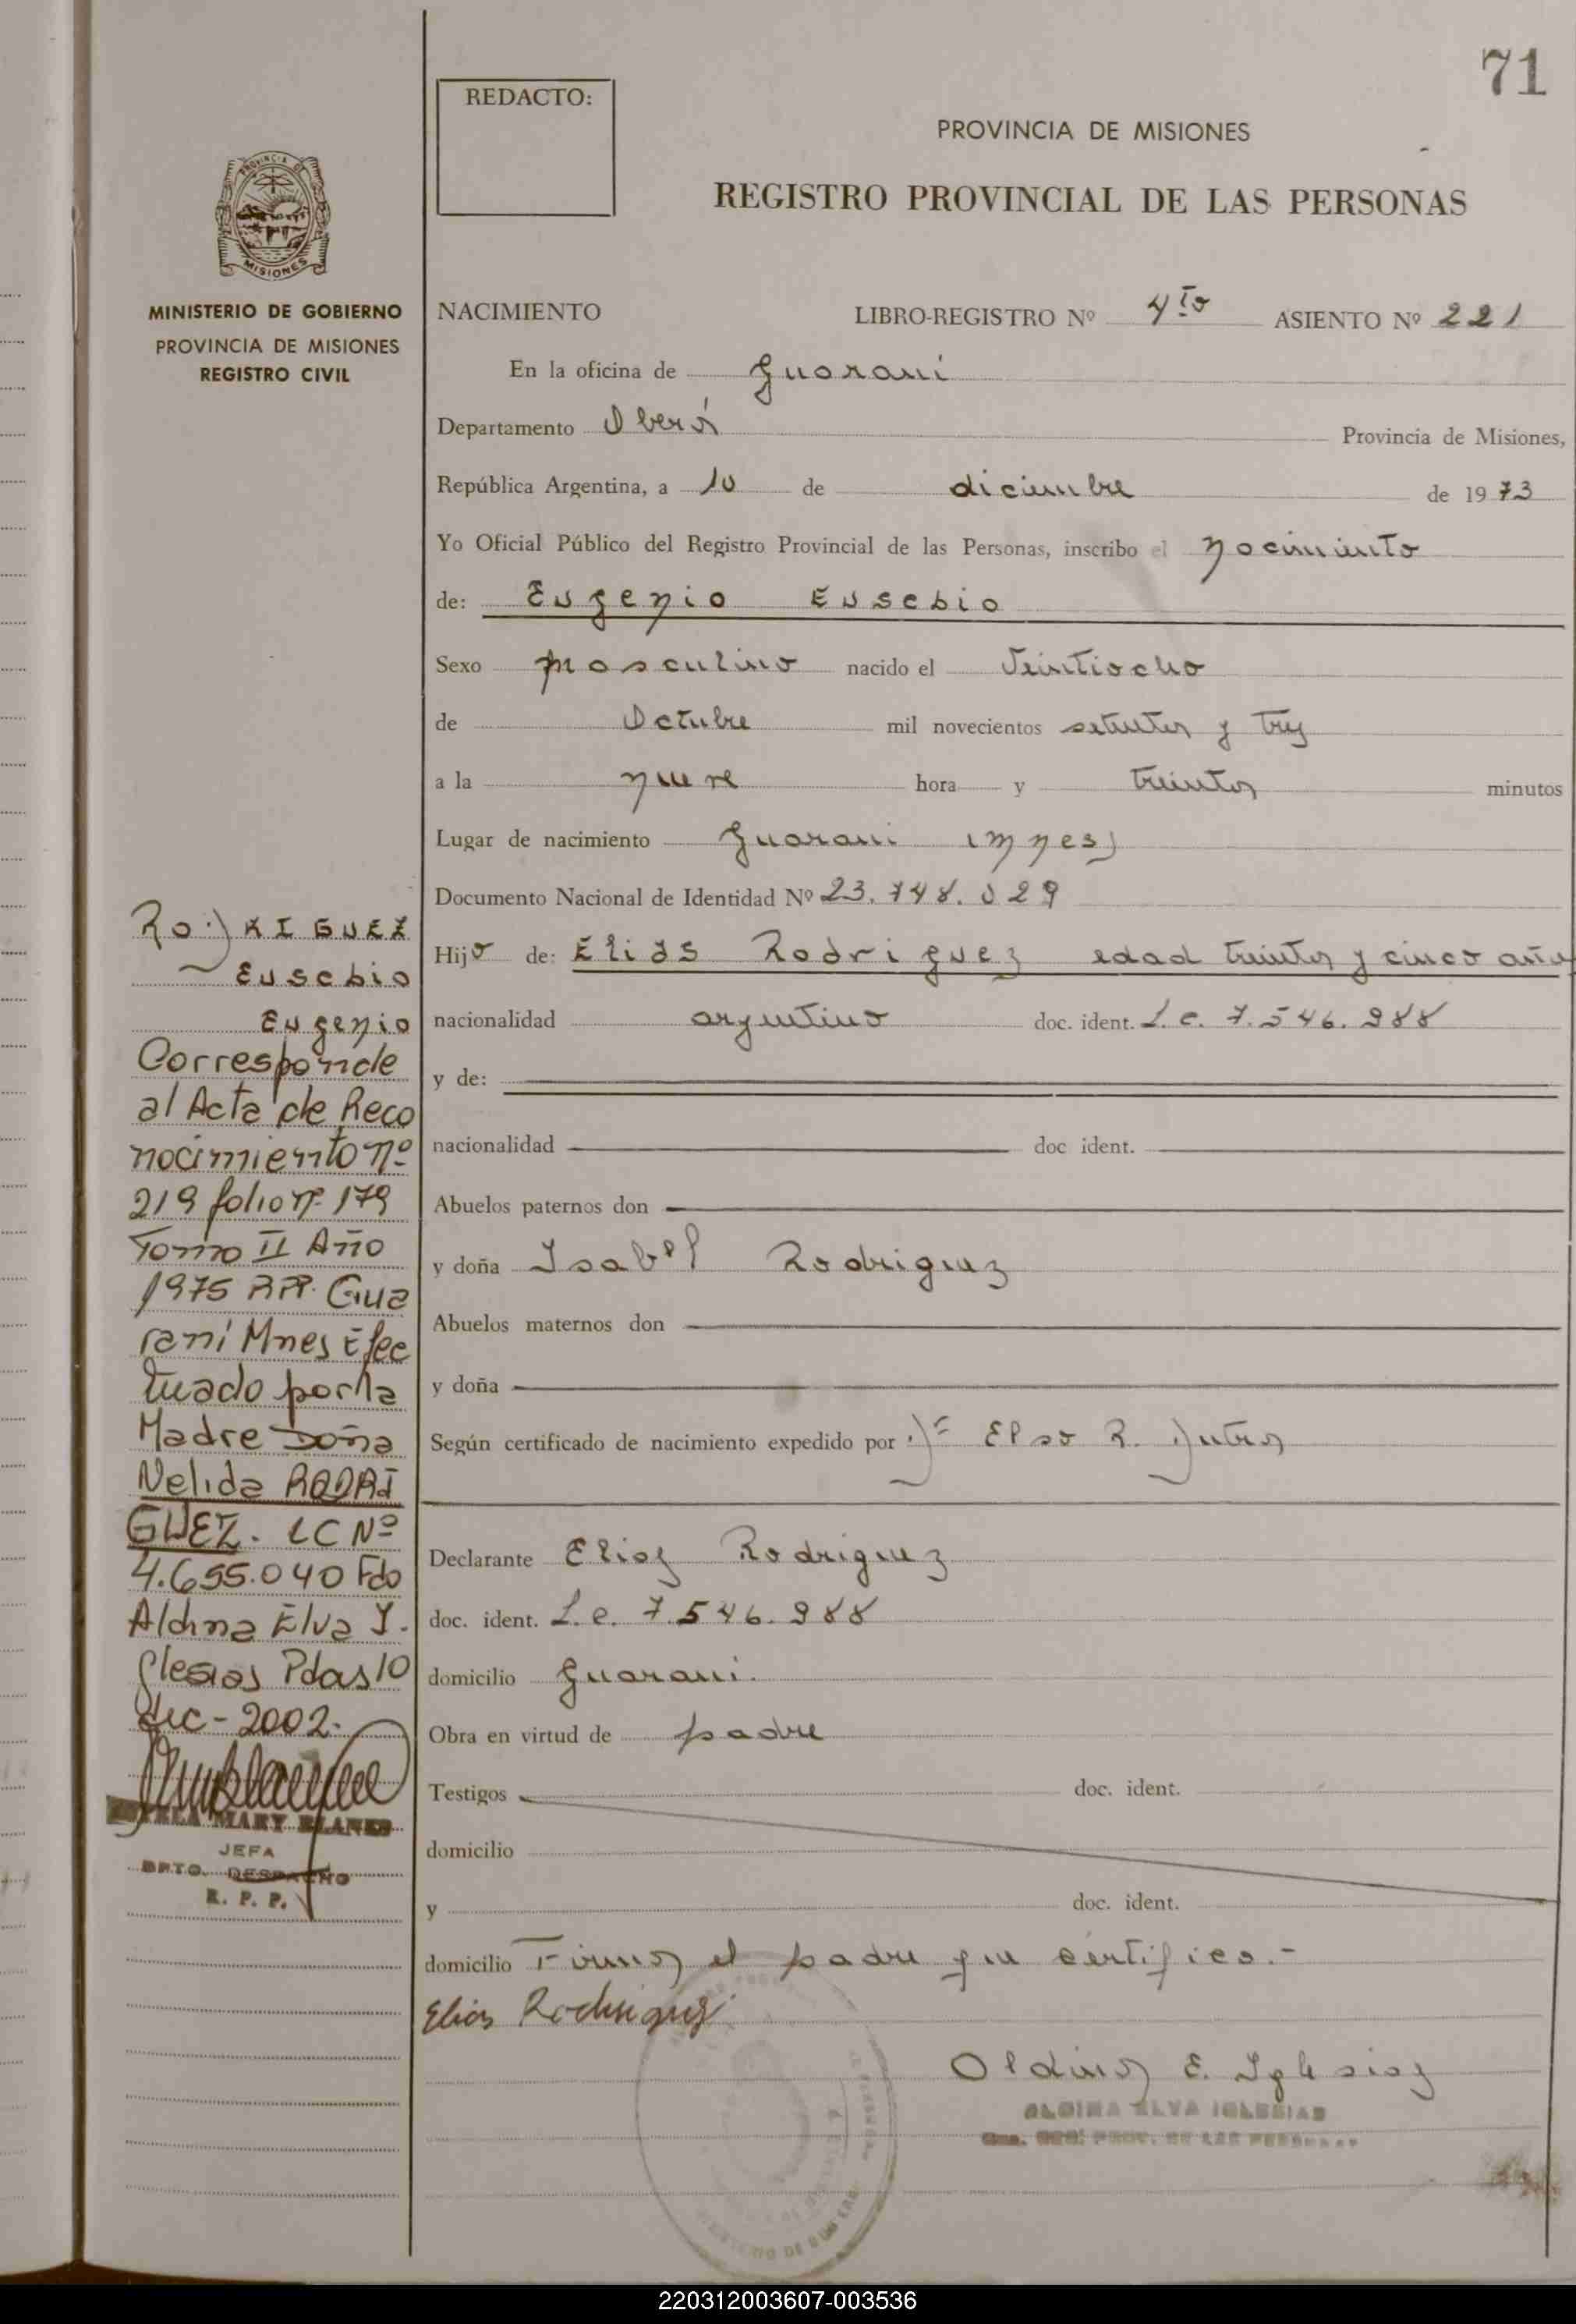 71
REDACTO:
PROVINCIA DE MISIONES
REGISTRO PROVINCIAL DE LAS PERSONAS
PROVINCIA DE
MISIONES
MINISTERIO DE GOBIERNO
PROVINCIA DE MISIONES
REGISTRO CIVIL
NACIMIENTO LIBRO-REGISTRO Nº 4to ASIENTO Nº 221
En la oficina de Guarani
Departamento Oberá Provincia de Misiones,
República Argentina, a 10 de diciembre de 1973
Yo Oficial Público del Registro Provincial de las Personas, inscribo el nacimiento
de: Eugenio Eusebio
Sexo masculino nacido el veintiocho
de Octubre mil novecientos setenta y tres
a la nueve hora y treinta minutos
Lugar de nacimiento Guarani (Mnes)
Documento Nacional de Identidad Nº 23.748.029
Hijo de: Elias Rodriguez edad treinta y cinco años
nacionalidad argentino doc. ident. L.e. 7.546.988
y de:
nacionalidad doc ident.
Abuelos paternos don
y doña Isabel Rodriguez
Abuelos maternos don
y doña
Según certificado de nacimiento expedido por Elso R.
Declarante Elias Rodriguez
doc. ident. L.e. 7.546.988
domicilio Guarani.
Obra en virtud de padre
Testigos doc. ident.
domicilio
y doc. ident.
domicilio Firma el padre que certifico.-
Elias Rodriguez
Aldina E. Iglesias
ALDINA ELVA IGLESIAS
RoDRIGUEZ
Eusebio
Eugenio
Corresponde
al Acta de Reco
nocimiento nº
219 folio nº 179
Tomo II Año
1975 RPP. Gua
raní Mnes Efec
tuado por la
Madre Doña
Nelida RODRI
GUEZ. LC Nº
4.655.040 Fdo
Aldina Elva I.
glesias Pdas 10
dic-2002.
MARY BLANCO
JEFA
DPTO. DESPACHO
R. P. P.
220312003607-003536